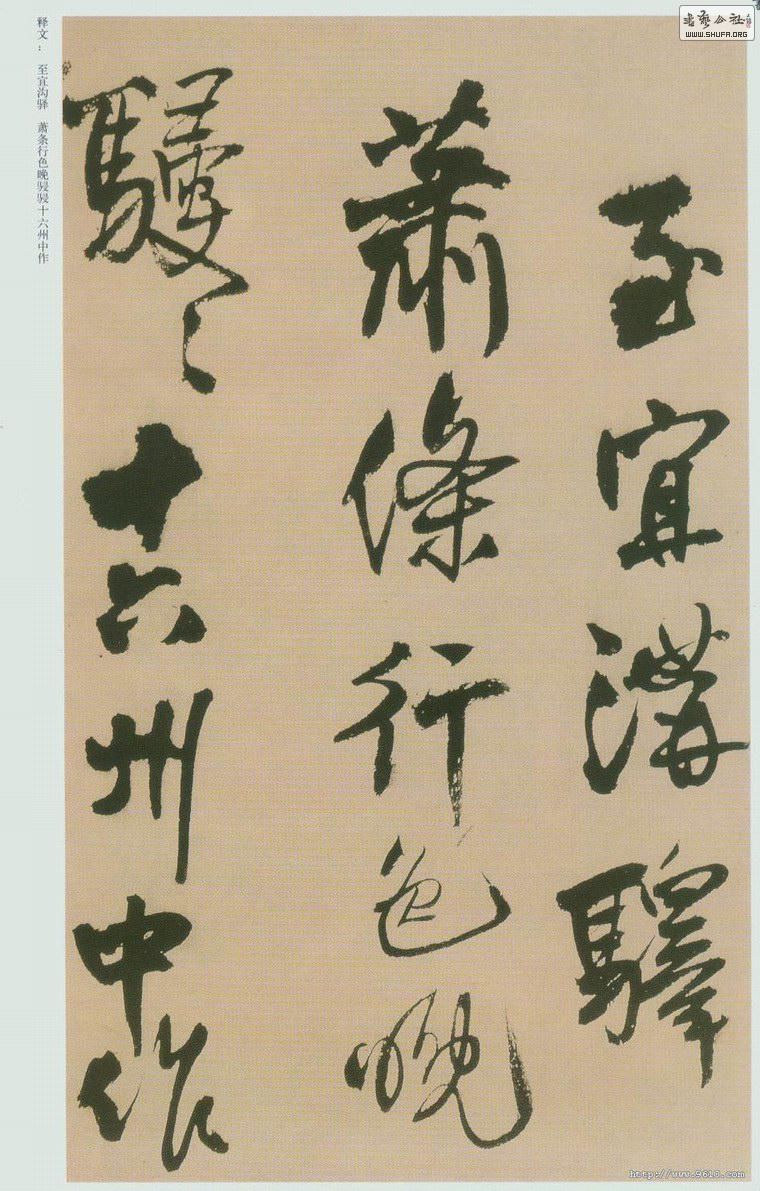 至宜溝驛
蕭條行色晚
駸〻十六州中作
释文： 至宜沟驿 萧条行色晚骎骎十六州中作
書藝公社
www.SHUFA.ORG
http://www.9610.com